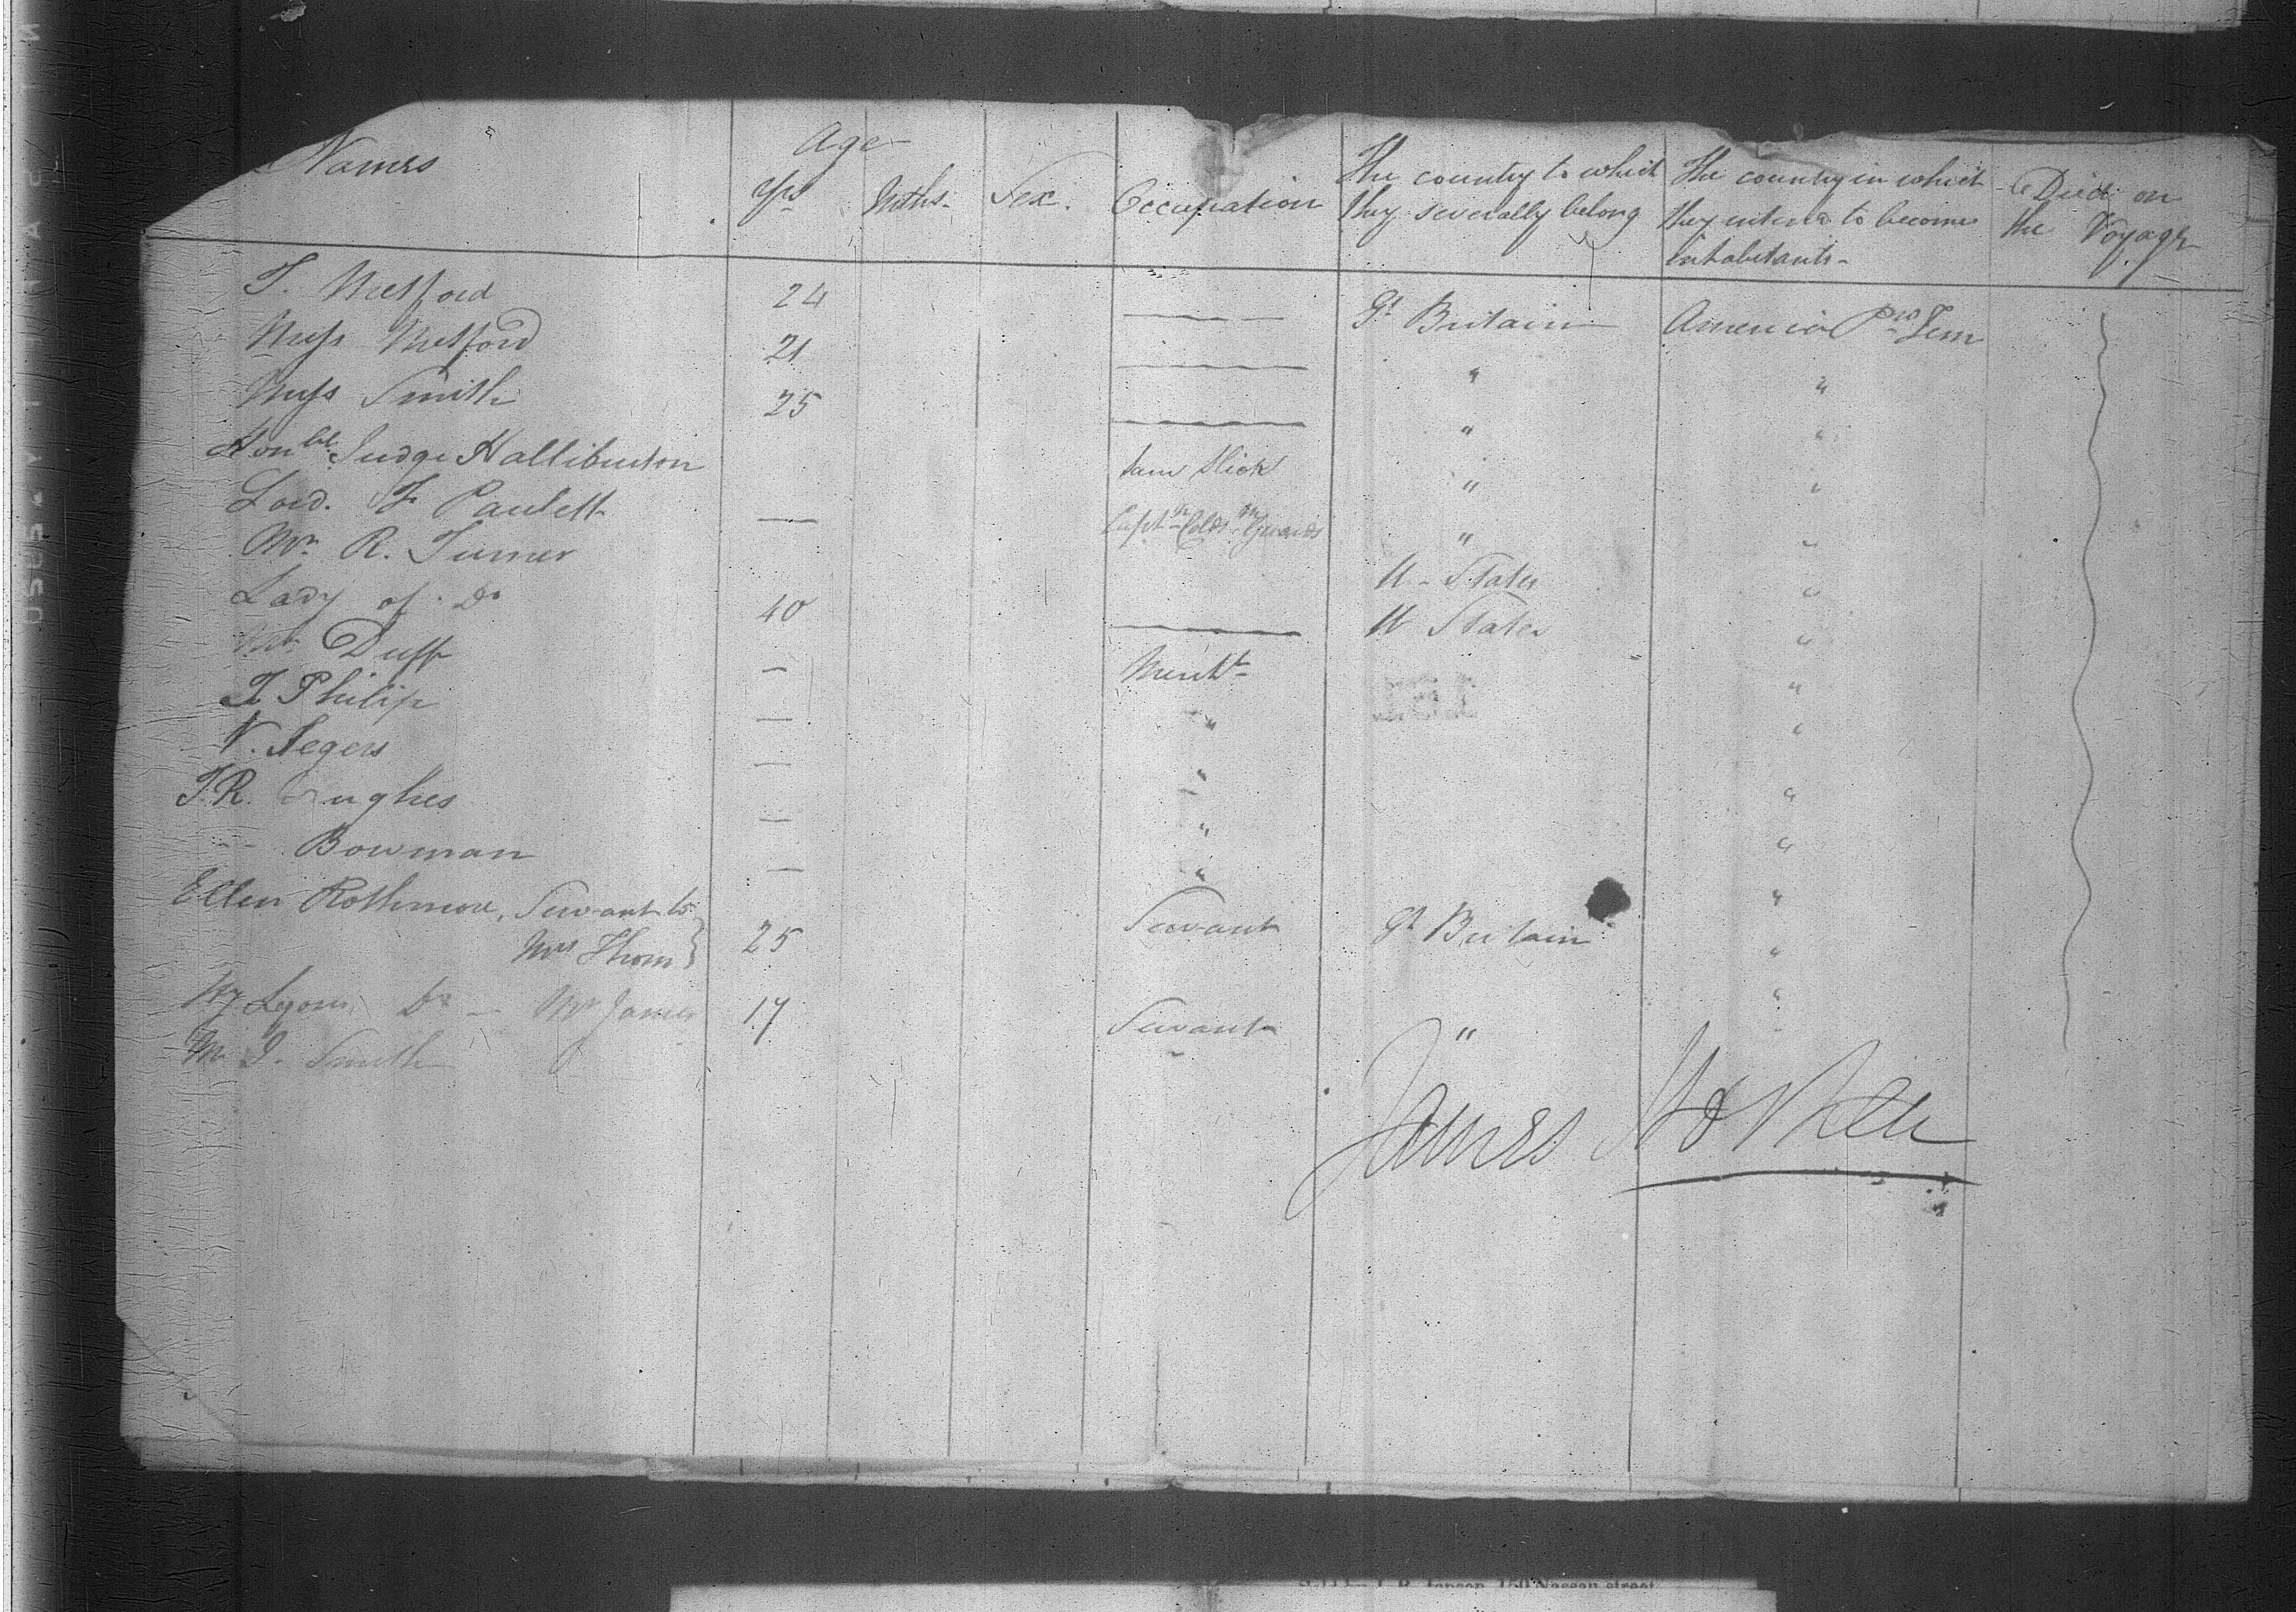 Names Age Yrs Mths. Sex. Occupation The country to which they severally belong The country in which they intend to become Inhabitants. Died on the Voyage
T. Metford 24 Gt Britain America Pro Tem
Miss Metford 21 " "
Miss Smith 25 " "
Honble Judge Halliburton Sam Slick " "
Lord. F Paulett — Captn Colds Guards " "
Mr R. Turner U. States "
Lady of Do 40 U States "
Mr Duff — Mercht "
T. Philip — " "
V. Segers — " "
T.R. Hughes — " "
Bowman — " "
Ellen Rothmore, Servant to
Mrs Thom } 25 Servant Gt Britain "
Wy Lyons Do — Mr James 17 Servant " "
Mr J. Smith
James Hosken
150 Nassau street